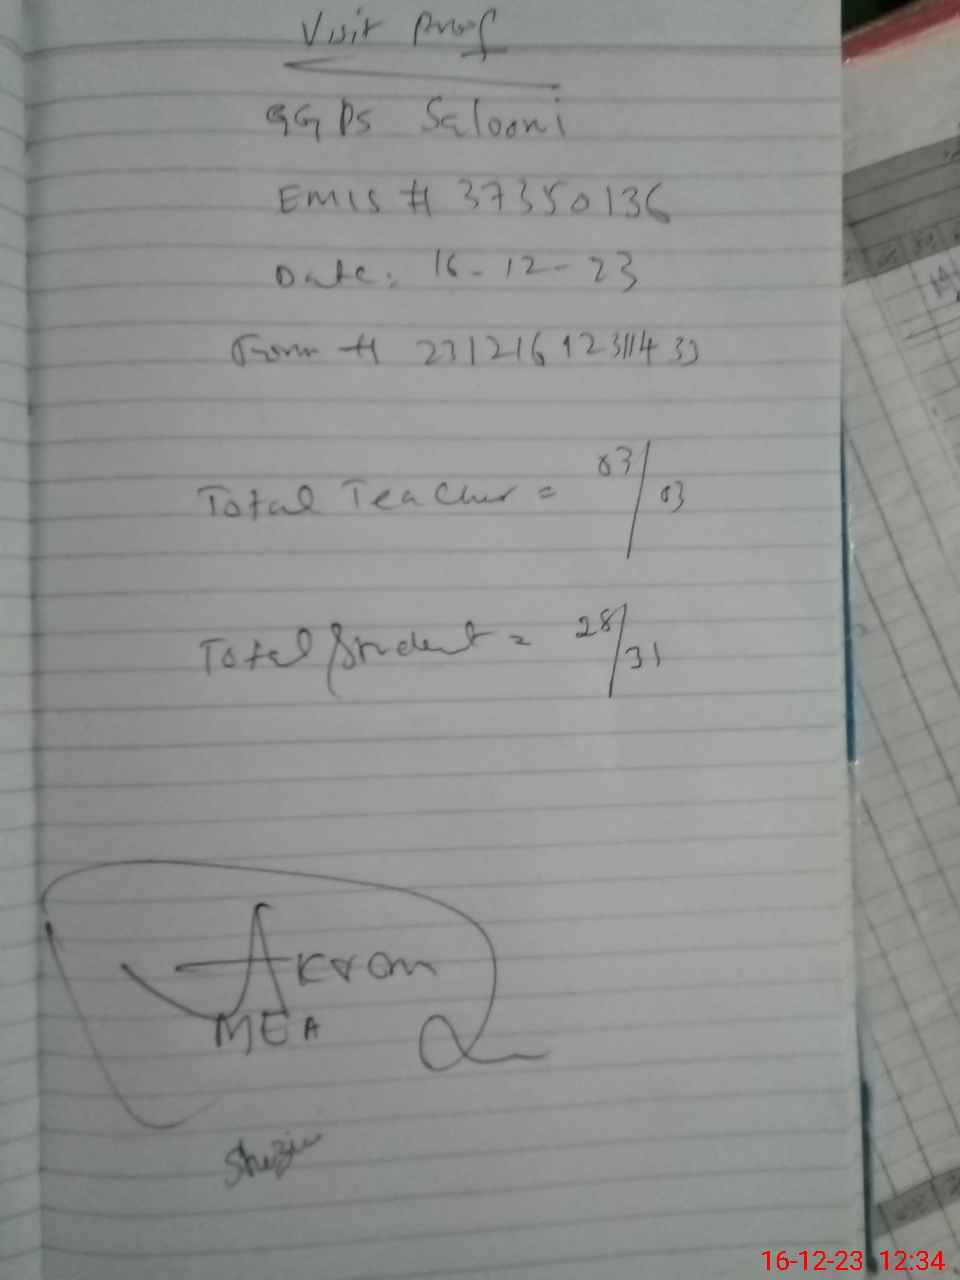 Visit Proof
GGPS Salooni
EMIS # 37350136
Date: 16-12-23
Form # 23121612311433
Total Teacher = 03/03
Total Student = 28/31
Akram
MEA
16-12-23 12:34